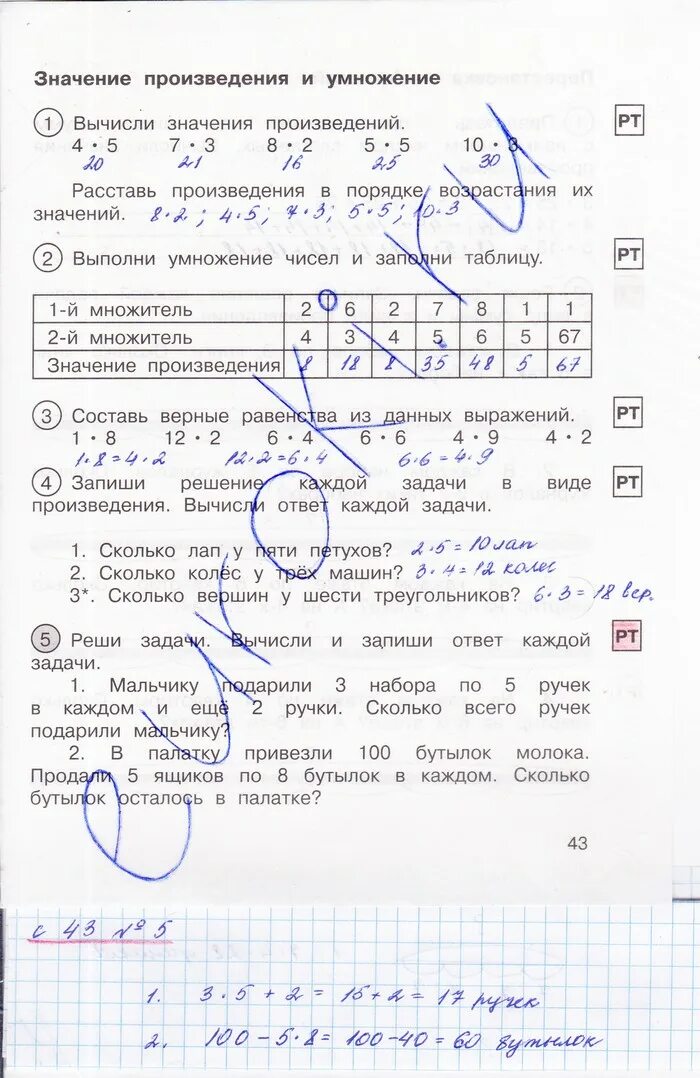 Значение произведения и умножение
1 Вычисли значения произведений. РТ
4 · 5 7 · 3 8 · 2 5 · 5 10 · 3
20 21 16 25 30
Расставь произведения в порядке возрастания их
значений. 8·2; 4·5; 7·3; 5·5; 10·3
2 Выполни умножение чисел и заполни таблицу. РТ
1-й множитель 2 6 2 7 8 1 1
2-й множитель 4 3 4 5 6 5 67
Значение произведения 8 18 8 35 48 5 67
3 Составь верные равенства из данных выражений. РТ
1 · 8 12 · 2 6 · 4 6 · 6 4 · 9 4 · 2
1·8=4·2 12·2=6·4 6·6=4·9
4 Запиши решение каждой задачи в виде РТ
произведения. Вычисли ответ каждой задачи.
1. Сколько лап у пяти петухов? 2·5=10 лап
2. Сколько колёс у трёх машин? 3·4=12 колес
3*. Сколько вершин у шести треугольников? 6·3=18 вер.
5 Реши задачи. Вычисли и запиши ответ каждой РТ
задачи.
1. Мальчику подарили 3 набора по 5 ручек
в каждом и ещё 2 ручки. Сколько всего ручек
подарили мальчику?
2. В палатку привезли 100 бутылок молока.
Продали 5 ящиков по 8 бутылок в каждом. Сколько
бутылок осталось в палатке?
43
с 43 № 5
1. 3·5+2=15+2=17 ручек
2. 100-5·8=100-40=60 бутылок